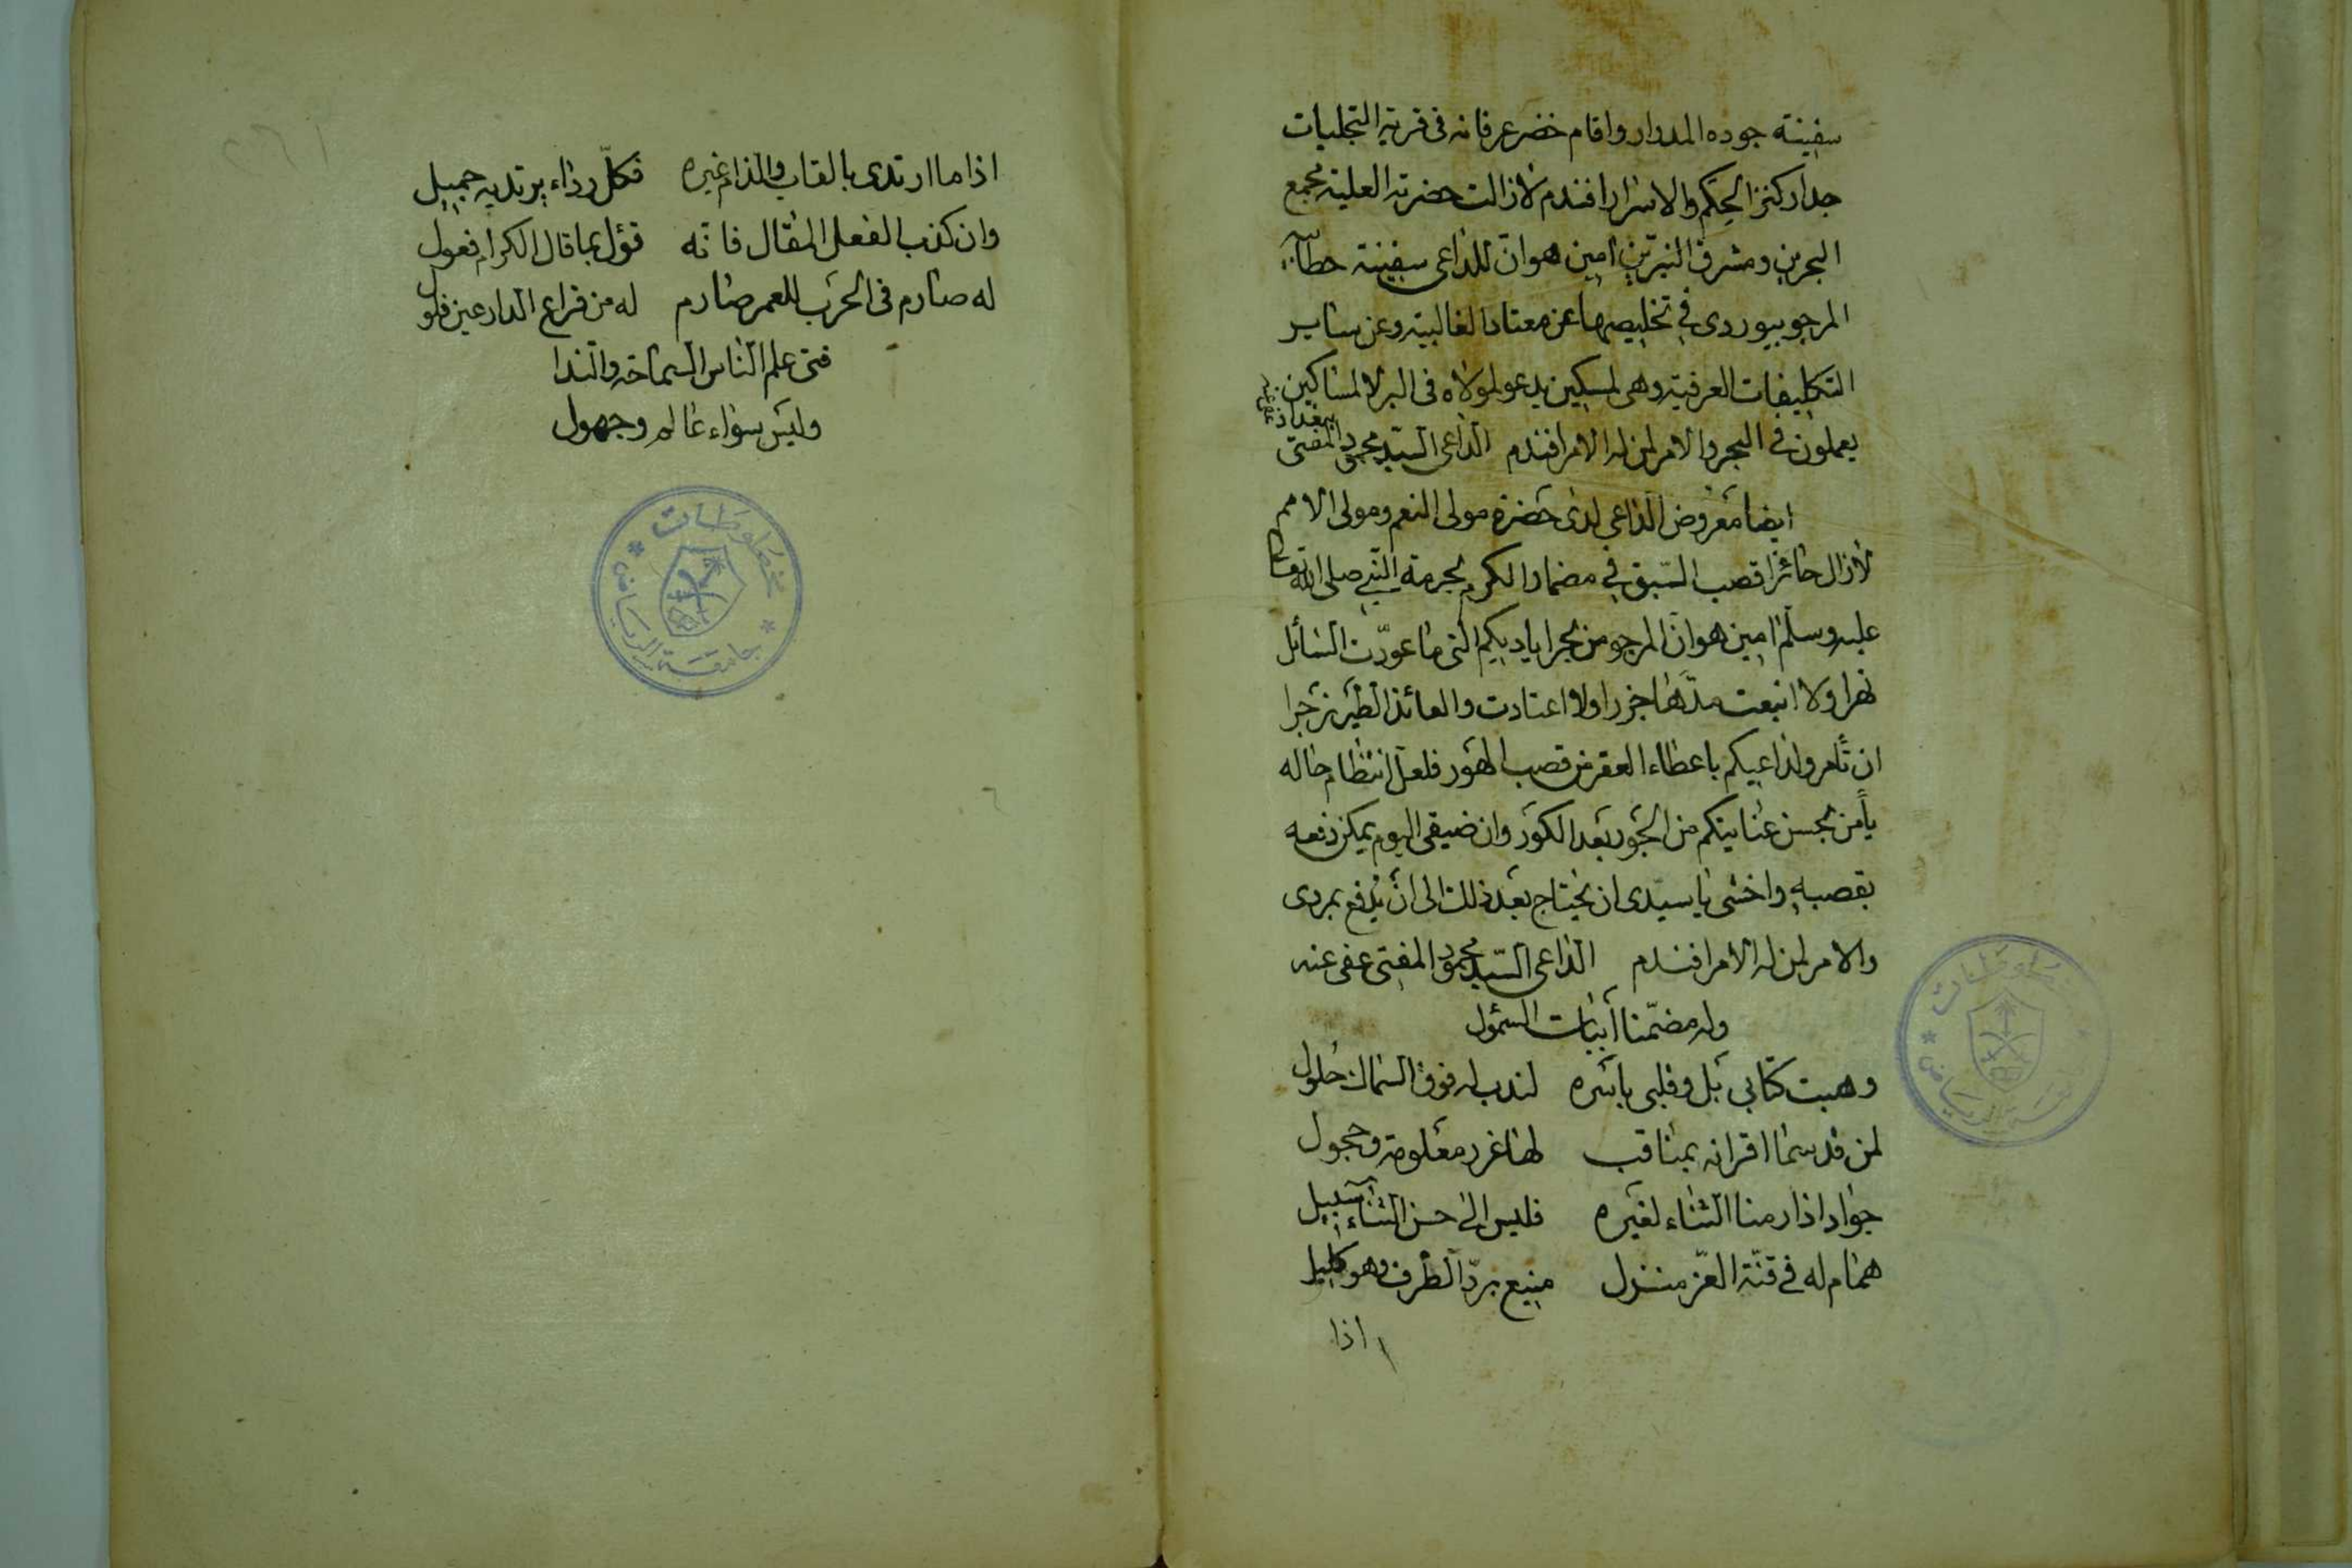 سفينته جوده المدوار واقام خضر عرفانه فى قرية التجليات
جدار كنز الحكم والاسرار افندم لازالت حضرته العلية مجمع
البحرين ومشرق النيرين امين هو ان للداعى سفينة حطآ
المرجو بيوردى فى تخليصها عن معتاد الغالبيه وعن ساير
التكليفات العرفيه وهى لمسكين يدعو لمولاه فى البر لا لمساكين
يعملون فى البحر والامر لمن له الامر افندم الداعى السيد محمود المفتى
ببغداد عفى عنه
ايضا معروض الداعي لدى حضرة مولى النعم ومولى الامم
لازال حائزا قصب السبق في مضمار الكرم بحرمة النبي صلى الله تعالى
عليه وسلم امين هو ان المرجو من بحر اياديكم التى ما عودت السائل
نهرا ولا اتبعت مدها جزرا ولا اعتادت والعائذ الطير زجرا
ان تأمروا لداعيكم باعطاء العقر من قصب الهور فلعل انتظام حاله
يأمن بحسن عنايتكم من الحور بعد الكور وان ضيقى اليوم يمكن دفعه
بقصبه واخشى يا سيدى ان يحتاج بعد ذلك الى ان يدفع بمردى
والامر لمن له الامر افندم الداعى السيد محمود المفتى عفى عنه
وله مضمنا ابيات السمؤل
وهبت كتابى بل وقلبى باسره لندب له فوق السماك حلول
لمن قد سما اقرانه بمناقب لها غرر معلومة وحجول
جواد اذا رمنا الثناء لغيره فليس الى حسن الثناء سبيل
همام له في قنة العز منزل منيع يرد الطرف وهو كليل
اذا
اذا ما ارتدى بالعاب والذام غيره فكل رداء يرتديه جميل
وان كذب الفعل المقال فانه قؤل بما قال الكرام فعول
له صارم فى الحرب للعمر صارم له من قراع الدارعين فلول
فتى علم الناس السماحة والندا
وليس سواء عالم وجهول
مخطوطات
جامعة الرياض